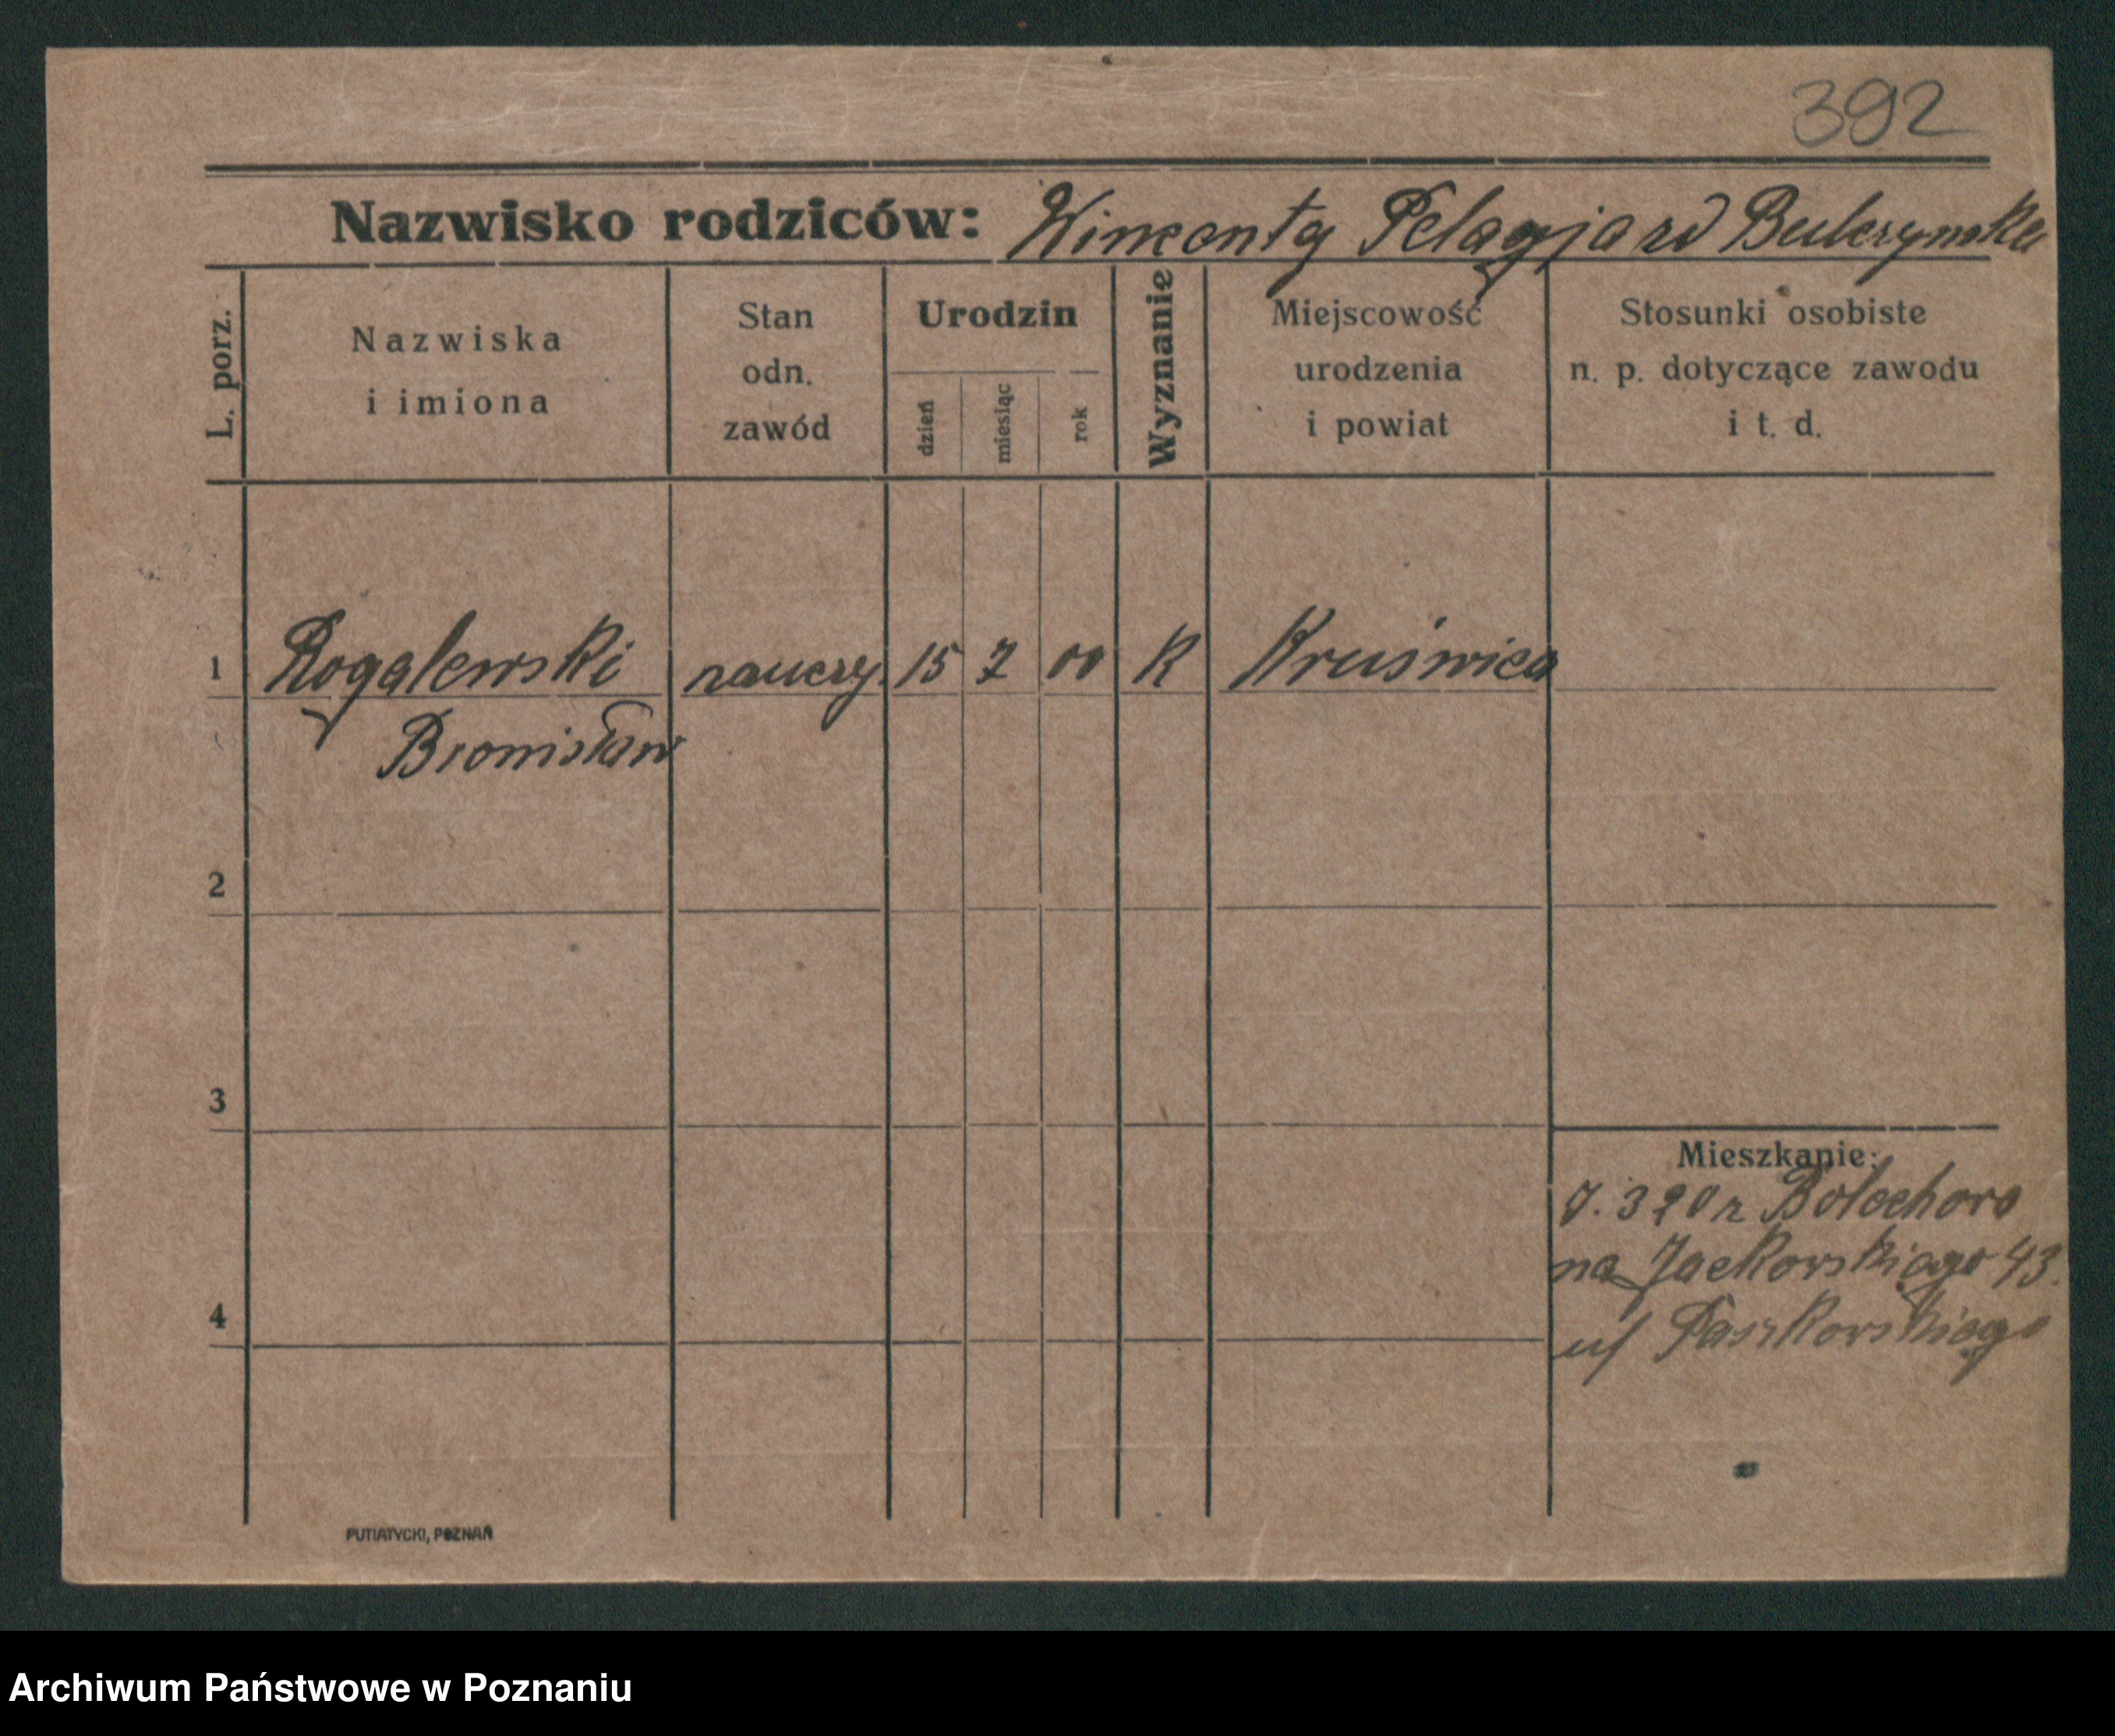 392
Nazwisko rodziców: Wincenty Pelagja zd Bulczynska
L. porz.
Nazwiska
i imiona
Stan
odn.
zawód
Urodzin
dzień
miesiąc
rok
Wyznanie
Miejscowość
urodzenia
i powiat
Stosunki osobiste
n. p. dotyczące zawodu
i t. d.
1 Rogalewski nauczy. 15 7 00 K Kruświca
Bronisław
2
3
4
Mieszkanie:
z Bolechowo
na Jackowskiego 43.
u/ Paszkowskiego
PUTIATYCKI, POZNAŃ
Archiwum Państwowe w Poznaniu